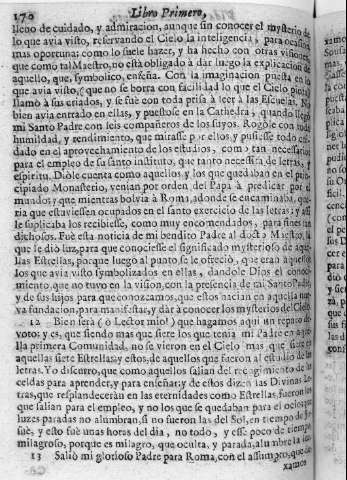 170 Libro Primero,
lleno de cuidado, y admiracion, aunque sin conocer el mysterio de
lo que avia visto, reservando el Cielo la inteligencia, para ocasion
mas oportuna: como lo suele hazer, y ha hecho con otras visiones,
que como tal Maestro, no està obligado à dar luego la explicacion de
aquello, que, symbolico, enseña. Con la imaginacion puesta en lo
que avia visto, (que no se borra con facilidad lo que el Cielo pinta)
llamò à sus criados, y se fue con toda prisa à leer à las Escuelas. No
bien avia entrado en ellas, y puestose en la Cathedra, quando llegò
mi Santo Padre con seis compañeros de los suyos. Rogòle con toda
humildad, y rendimiento, que mirasse por ellos, y pusiesse todo cui-
dado en el aprovechamiento de los estudios, como tan necessario
para el empleo de su santo instituto, que tanto necessita de letras, y
espiritu. Diòle cuenta como aquellos y los que quedaban en el prin-
cipiado Monasterio, venian por orden del Papa à predicar por el
mundo; y que mientras bolvia à Roma, adonde se encaminaba, que-
ria que estaviessen ocupados en el santo exercicio de las letras; y assi
le suplicaba los recibiesse, como muy encomendados, para fines tan
dichosos. Fue esta noticia de mi bendito Padre al docto Maestro, la
que le diò luz, para que conociesse el significado mysterioso de aque-
llas Estrellas, porque luego al punto, se le ofreciò, que eran aquellos
los que avia visto symbolizados en ellas, dandole Dios el conoci-
miento, que no tuvo en la vision, con la presencia de tal Santo Padre,
y de sus hijos para que conozcamos, que estos nacian en aquella nue-
va fundacion, para manifestar, y dár à conocer los mysterios del Cielo.
12 Bien serà (ò Lector mio!) que hagamos aqui un reparo de-
voto; y es, que siendo mas que siete los que tenia mi Padre en aque-
lla primera Comunidad, no se vieron en el Cielo mas que siete
aquellas siete Estrellas; y estos, de aquellos que fueron al estudio de las
letras. Yo discurro, que como aquellos salian del recogimiento de las
celdas para aprender, y para enseñar; y de estos dizen las Divinas Le-
tras, que resplandeceràn en las eternidades como Estrellas, fueron los
que salian para el empleo, y no los que se quedaban para el ocio; que
luzes paradas no alumbran, si no fueron las del Sol, en tiempo de Jo-
suè, y esto fue unas horas del dia, no todo, y esse poco de tiempo
milagroso, porque es milagro, que oculta, y parada, alumbre la luz.
13 Saliò mi glorioso Padre para Roma, con el assumpto, que de-
xamos